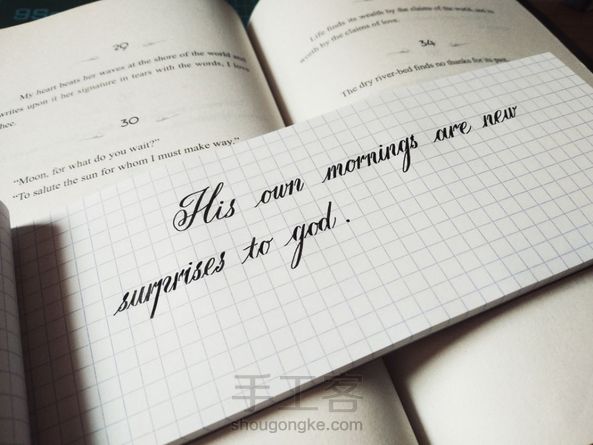 29
My heart beats her waves at the shore of the world and
writes upon it her signature in tears with the words, I love
thee.
30
"Moon, for what do you wait?"
"To salute the sun for whom I must make way."
Life finds its wealth by the claims of the world, and its
worth by the claims of love.
34
The dry river-bed finds no thanks for its past.
His own mornings are new
surprises to god.
手工客
shougongke.com